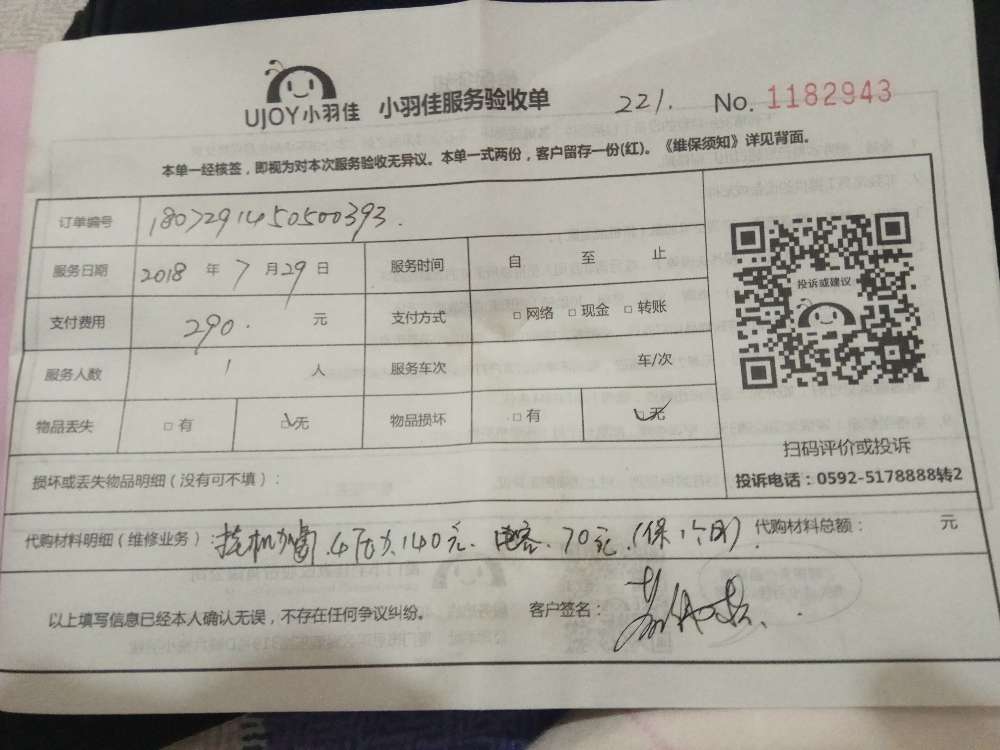 UJOY小羽佳 小羽佳服务验收单 221. No. 1182943
本单一经核签，即视为对本次服务验收无异议。本单一式两份，客户留存一份(红)。《维保须知》详见背面。
订单编号 1807291450500393.
服务日期 2018 年 7 月 29 日 服务时间 自 至 止
支付费用 290. 元 支付方式 □网络 □现金 □转账
服务人数 1 人 服务车次 车/次
物品丢失 □有 ☑无 物品损坏 □有 ☑无
投诉或建议
扫码评价或投诉
投诉电话：0592-5178888转2
损坏或丢失物品明细（没有可不填）：
代购材料明细（维修业务）：挂机加氟.4压力.140元.电容.70元.(保1个月) 代购材料总额： 元
以上填写信息已经本人确认无误，不存在任何争议纠纷。 客户签名：